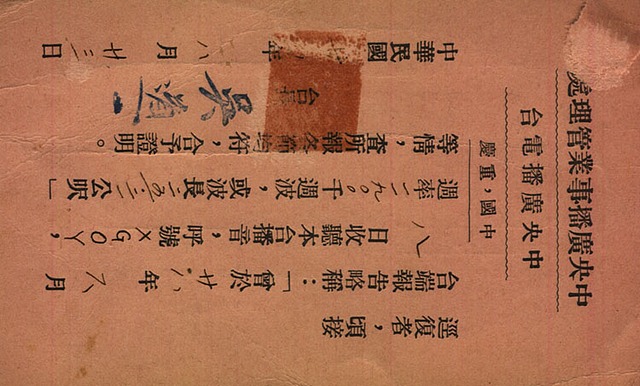 中央廣播事業管理處
中央廣播電台
中國，重慶
逕復者，頃接
台端報告略稱：「曾於廿八年六月
八日收聽本台播音，呼號XGOY，
週率千週波，或波長公呎」
等情，查所報各節均符，合予證明。
台長 吳道一
中華民國年八月廿三日